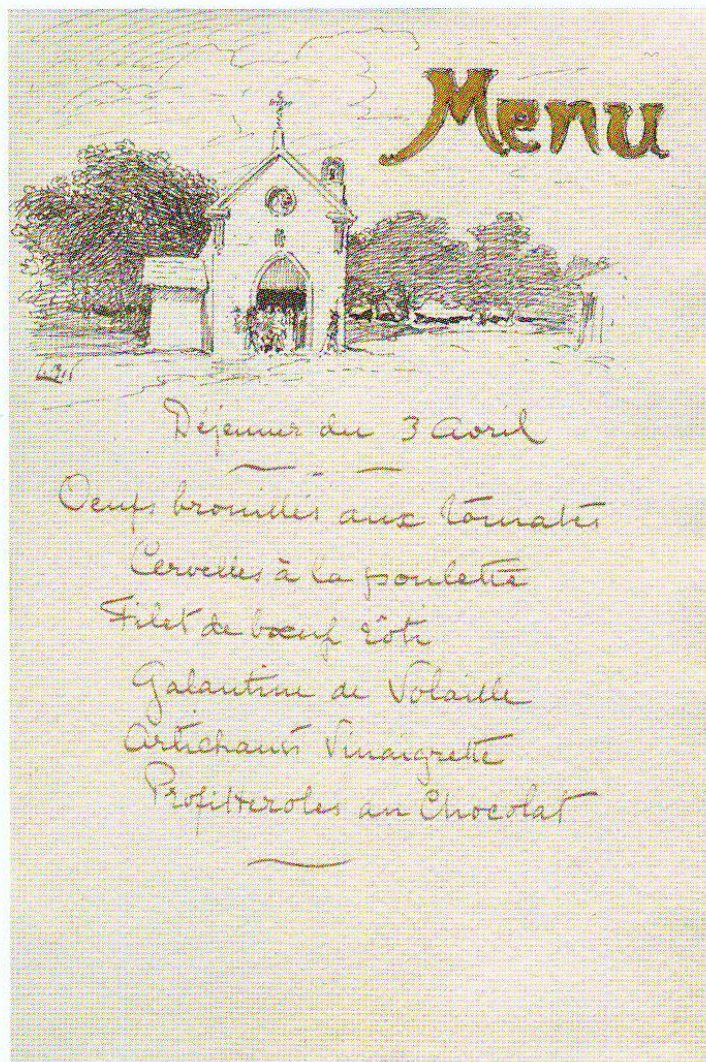 Menu
Déjeuner du 3 Avril
Oeufs brouillés aux tomates
Cervelles à la poulette
Filet de bœuf rôti
Galantine de Volaille
Artichauts Vinaigrette
Profitteroles au Chocolat